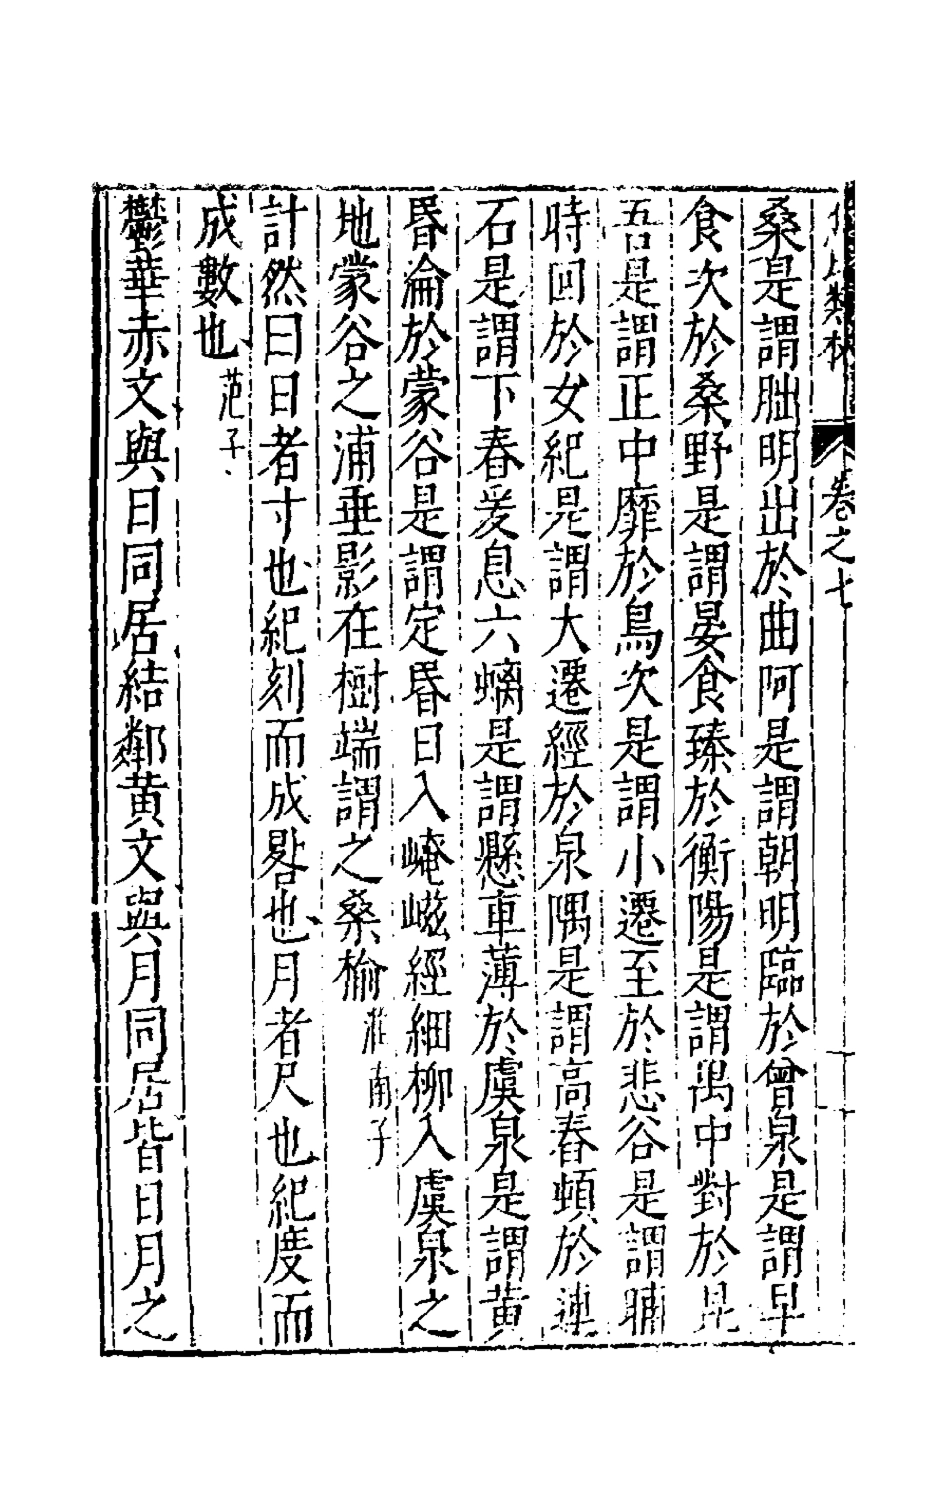 類林 卷之七
桑是謂朏明出於曲阿是謂朝明臨於曾泉是謂早
食次於桑野是謂晏食臻於衡陽是謂禺中對於昆
吾是謂正中靡於鳥次是謂小遷至於悲谷是謂晡
時回於女紀是謂大遷經於泉隅是謂高舂頓於連
石是謂下舂爰息六螭是謂懸車薄於虞泉是謂黃
昏淪於蒙谷是謂定昏日入崦嵫經細柳入虞泉之
地蒙谷之浦垂影在樹端謂之桑榆淮南子
計然曰日者寸也紀刻而成晷也月者尺也紀度而
成數也范子
鬱華赤文與日同居結鄰黃文與月同居皆日月之